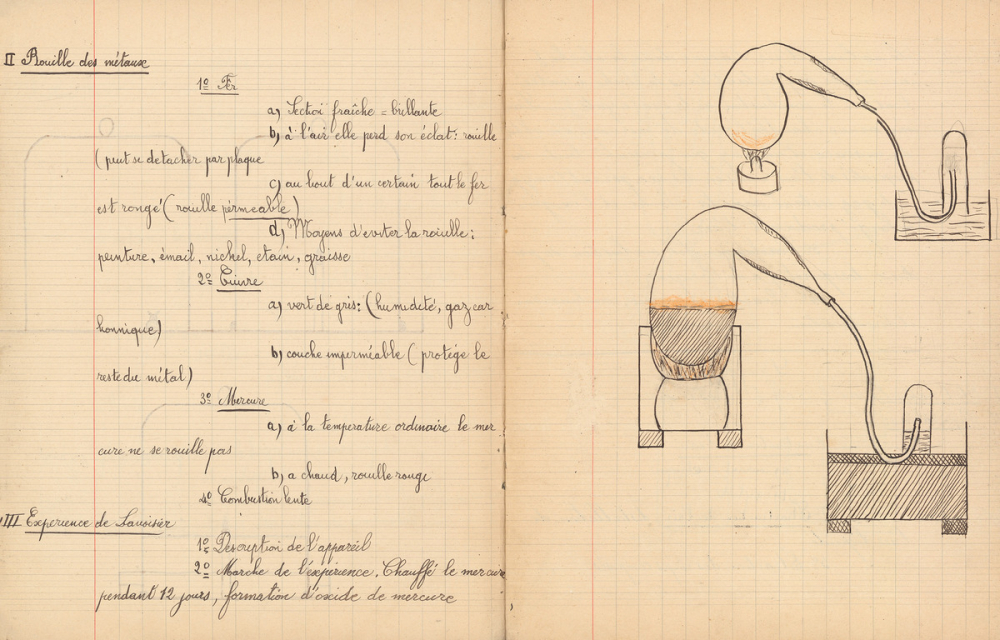 II Rouille des métaux
1º Fer
a) Section fraîche = brillante
b) à l'air elle perd son éclat: rouille
(peut se detacher par plaque
c) au bout d'un certain tout le fer
est rongé (rouille perméable)
d) Moyens d'eviter la rouille:
peinture, émail, nickel, etain, graisse
2º Cuivre
a) vert de gris: (humidité, gaz car
bonnique)
b) couche imperméable (protège le
reste du métal)
3º Mercure
a) à la temperature ordinaire le mer
cure ne se rouille pas
b) a chaud, rouille rouge
4º Combustion lente
III Experience de Lavoisier
1º Description de l'appareil
2º Marche de l'expérience. Chauffé le mercure
pendant 12 jours, formation d'oxide de mercure